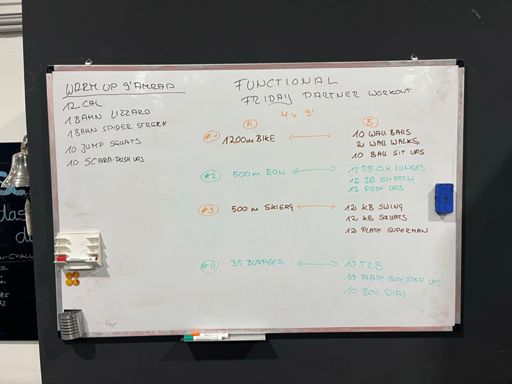 WARM UP 9' AMRAP
12 CAL
1 BAHN LIZZARD
1 BAHN SPIDER STRETCH
10 JUMP SQUATS
10 SCAPA PUSH UPS
FUNCTIONAL
FRIDAY PARTNER WORKOUT
4 x 9'
A B
#1 1200m BIKE 10 WALL BALLS
2 WALL WALKS
10 BALL SIT UPS
#2 500m ROW 12 DB O.H LUNGES
12 DB SNATCH
12 PUSH UPS
#3 500m SKIERG 12 KB SWING
12 KB SQUATS
12 PLATE SUPERMAN
35 BURPEES 10 T2B
10 PLATE BOX STEP UPS
10 BOX DIPS